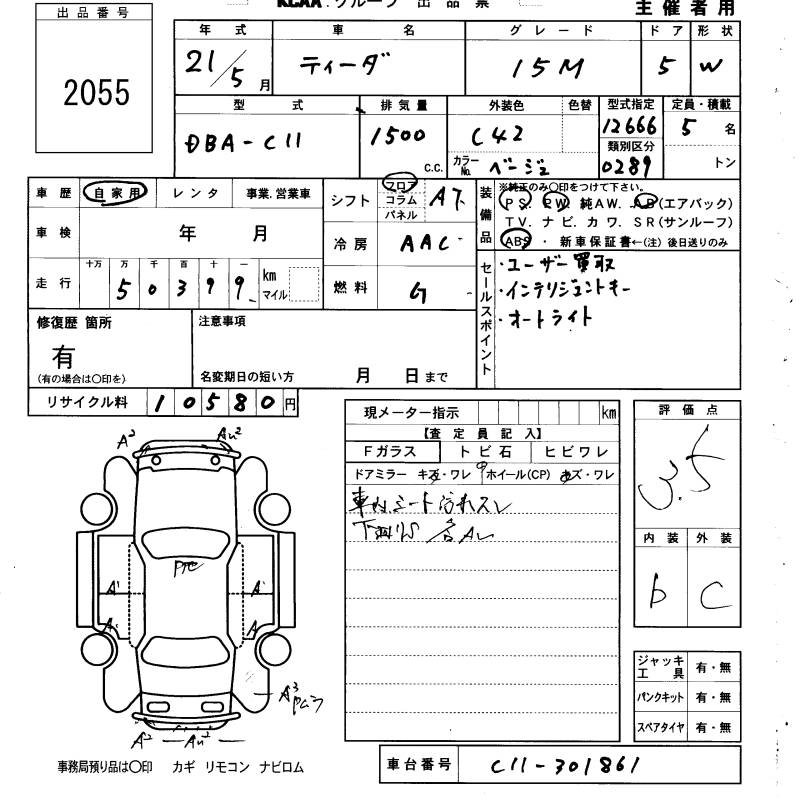 KCAA.グループ 出品票
主催者用
出品番号
2055
年式 車名 グレード ドア 形状
21/5月 ティーダ 15M 5 W
型式 排気量 外装色 色替 型式指定 定員・積載
DBA-C11 1500 c.c. C42 12666 5名
カラーNo. ベージュ 類別区分 0289 トン
車歴 自家用 レンタ 事業.営業車
シフト フロア コラム パネル AT
装備品 ※純正のみ〇印をつけて下さい。
PS. PW 純AW. AB(エアバック)
TV. ナビ. カワ. SR(サンルーフ)
ABS ・ 新車保証書←(注) 後日送りのみ
車検 年 月
冷房 AAC
走行 十万 万 千 百 十 一
50399 km マイル
燃料 G
セールスポイント
・ユーザー買取
・インテリジェントキー
・オートライト
修復歴 箇所
有
(有の場合は〇印を)
注意事項
名変期日の短い方 月 日まで
リサイクル料 10580円
現メーター指示 km
【査定員記入】
Fガラス トビ石 ヒビワレ
ドアミラー キズ・ワレ ホイール(CP) キズ・ワレ
車内シート汚れスレ
評価点
3.5
内装 外装
b C
A² AU²
A¹ A¹
A A
A³
A² AU²
ジャッキ工具 有・無
パンクキット 有・無
スペアタイヤ 有・無
車台番号 C11-301861
事務局預り品は〇印 カギ リモコン ナビロム